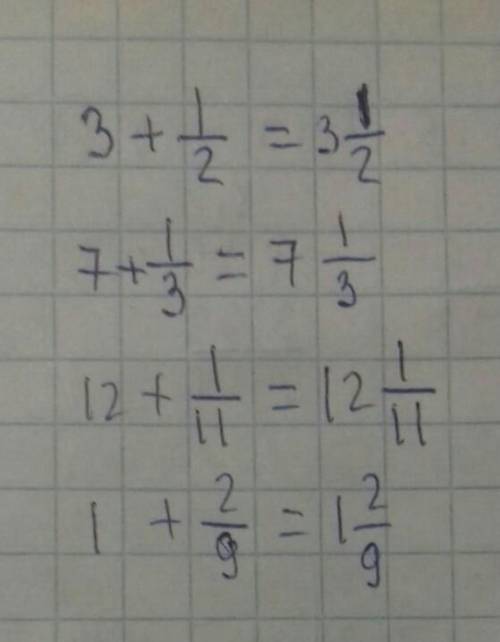 3 + 1/2 = 3 1/2
7 + 1/3 = 7 1/3
12 + 1/11 = 12 1/11
1 + 2/9 = 1 2/9